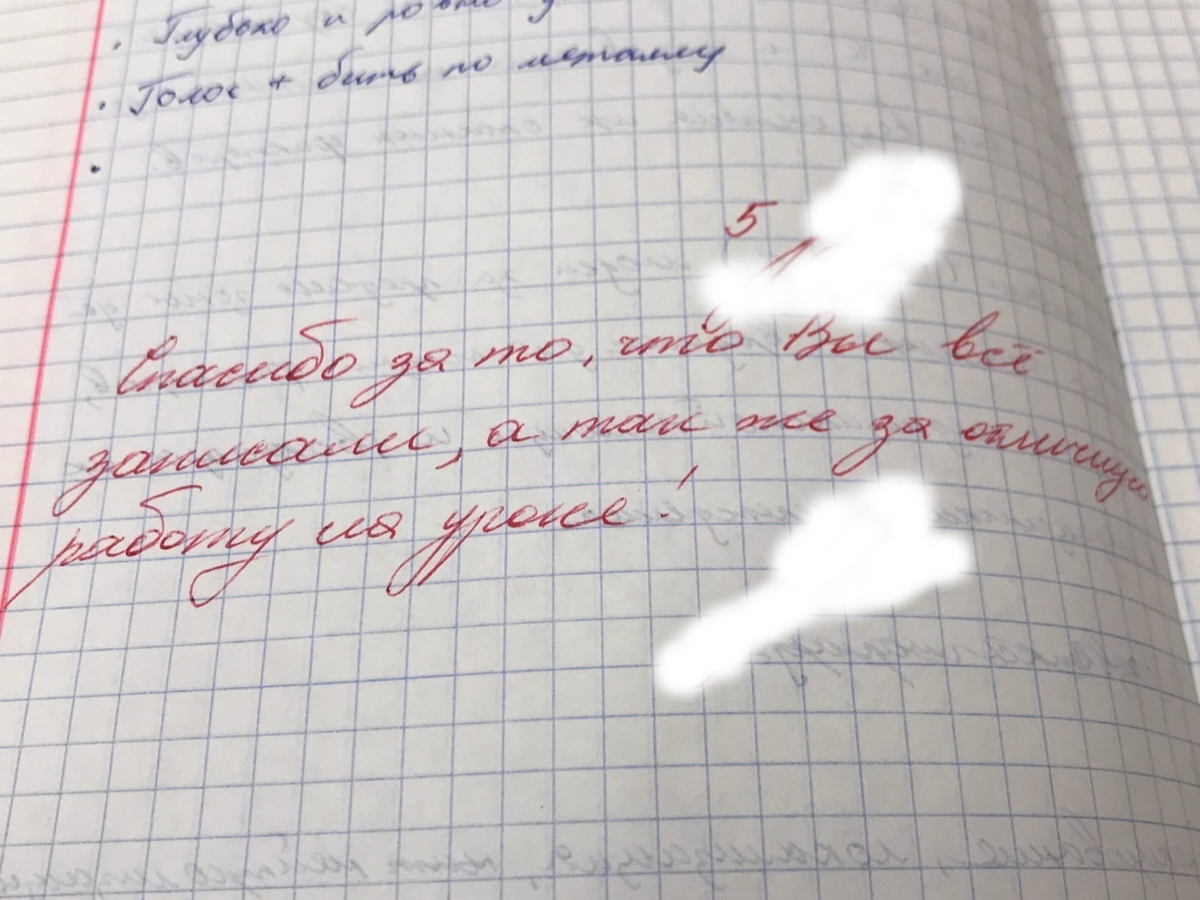 · Глубоко и ровно
· Голос + бить по металлу
·
5
Спасибо за то, что Вы всё
записали, а так же за отличную
работу на уроке!